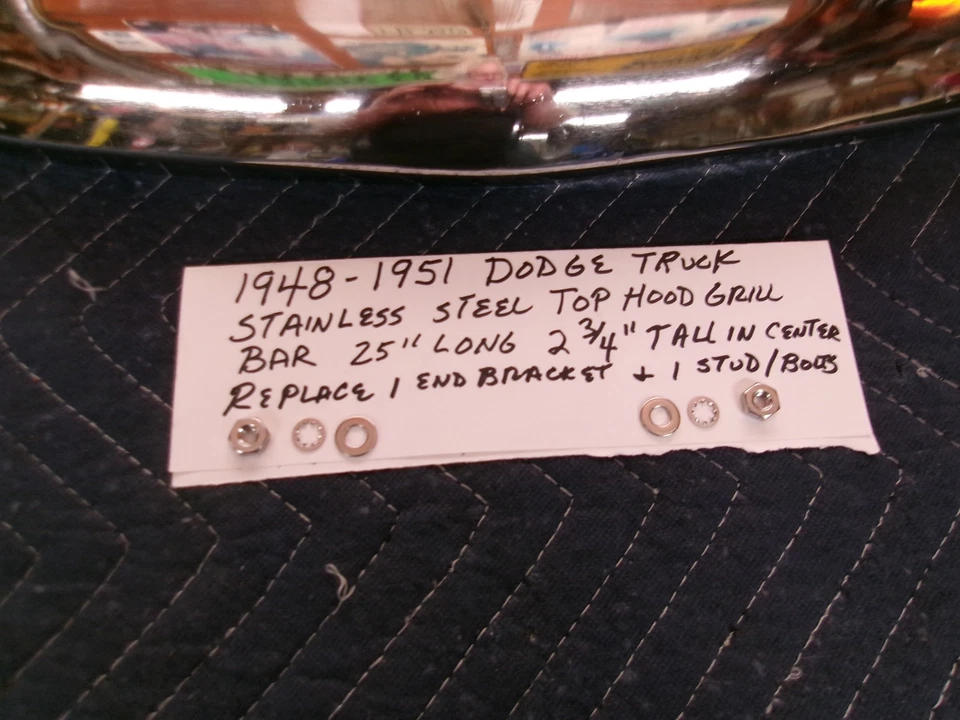 1948-1951 DODGE TRUCK
STAINLESS STEEL TOP HOOD GRILL
BAR 25" LONG 2 3/4" TALL IN CENTER
REPLACE 1 END BRACKET + 1 STUD/BOLTS